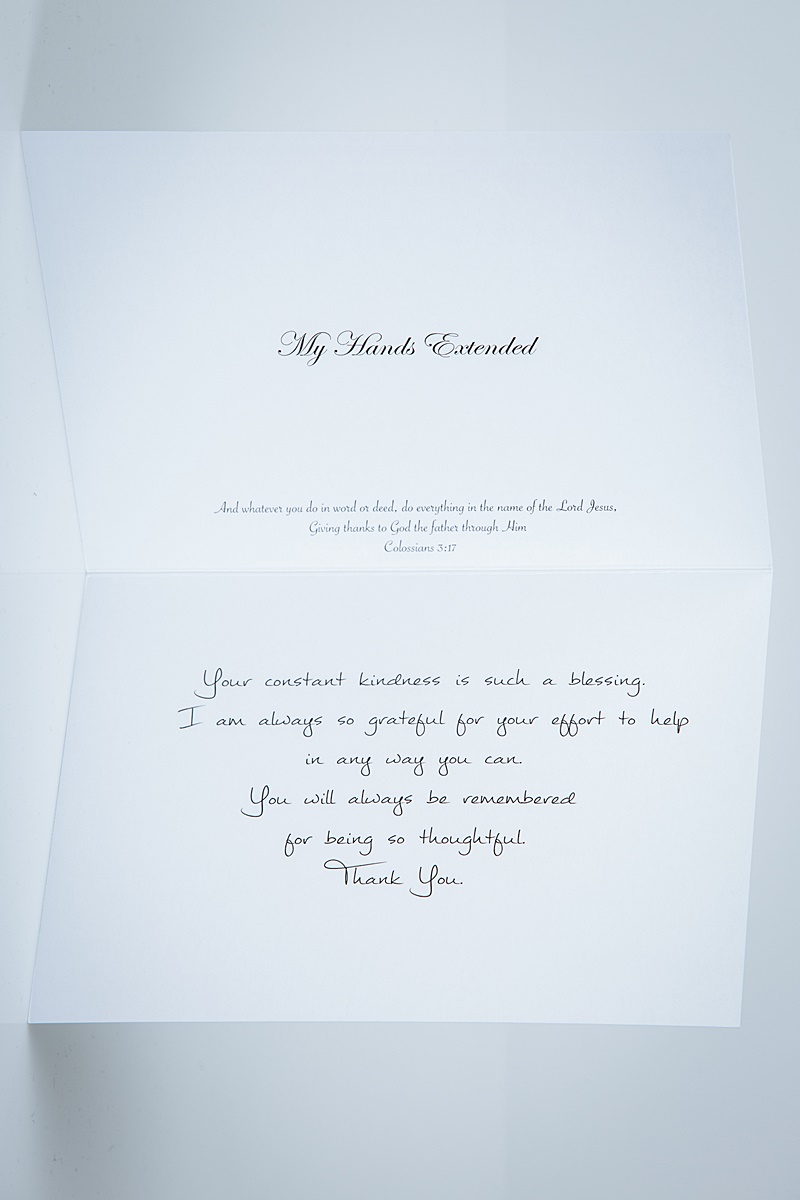 My Hands Extended
And whatever you do in word or deed, do everything in the name of the Lord Jesus,
Giving thanks to God the father through Him
Colossians 3:17
Your constant kindness is such a blessing.
I am always so grateful for your effort to help
in any way you can.
You will always be remembered
for being so thoughtful.
Thank You.